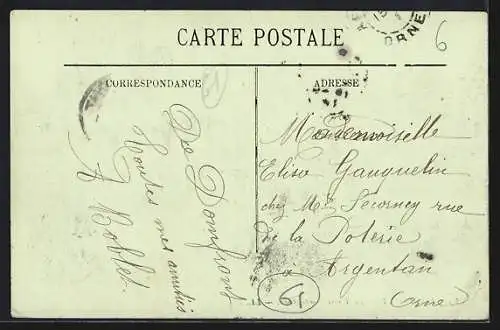 CARTE POSTALE
6
ORNE
CORRESPONDANCE
ADRESSE
De Domfront
toutes mes amitiés
A Boblet
Mademoiselle
Elise Gauquelin
chez Me Fourney rue
de la Poterie
a Argentan
Orne
61